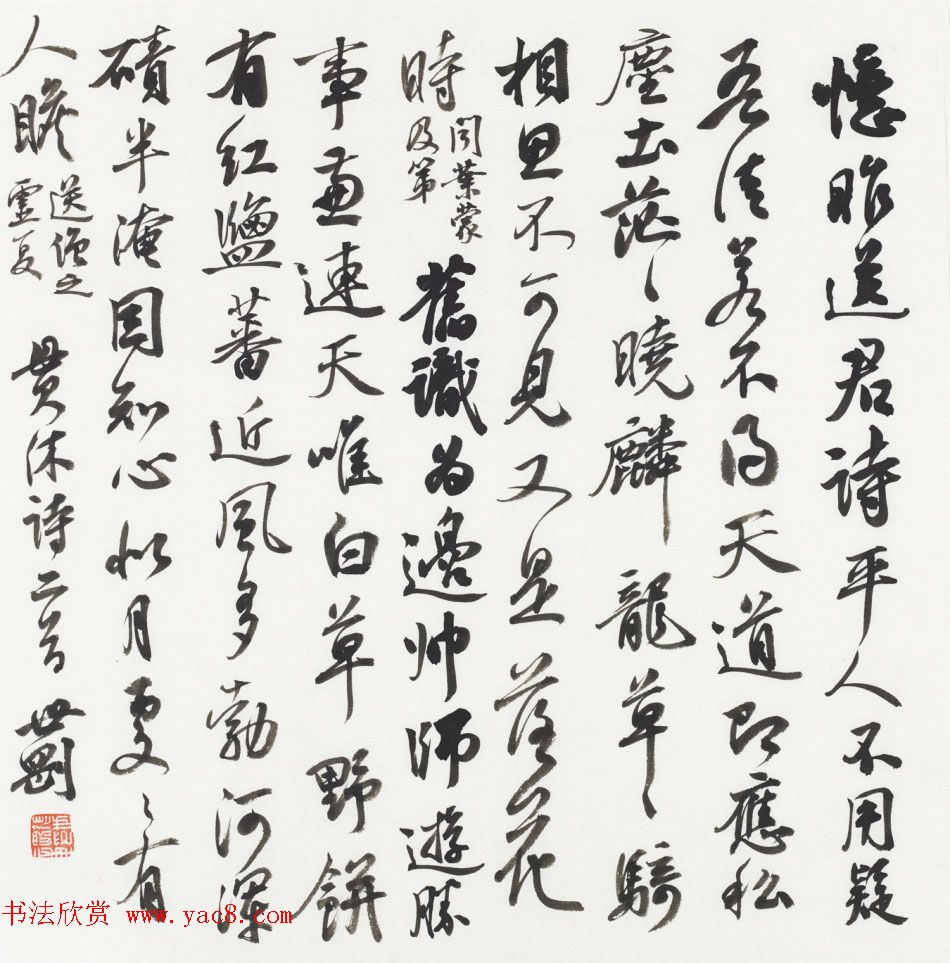 憶昨送君诗平人不用疑
吾徒若不得天道即應私
塵土茫〻曉麟龍草〻騎
相思不可見又是落花
時
闻葉蒙
及第
舊識為邊帅師遊勝
事兼連天唯白草野餅
有红鹽蕃近風多勃河渾
磧半淹因知心似月處〻有
人瞻
送僧之
靈夏
貫休詩二首 世剛
书法欣赏 www.yac8.com